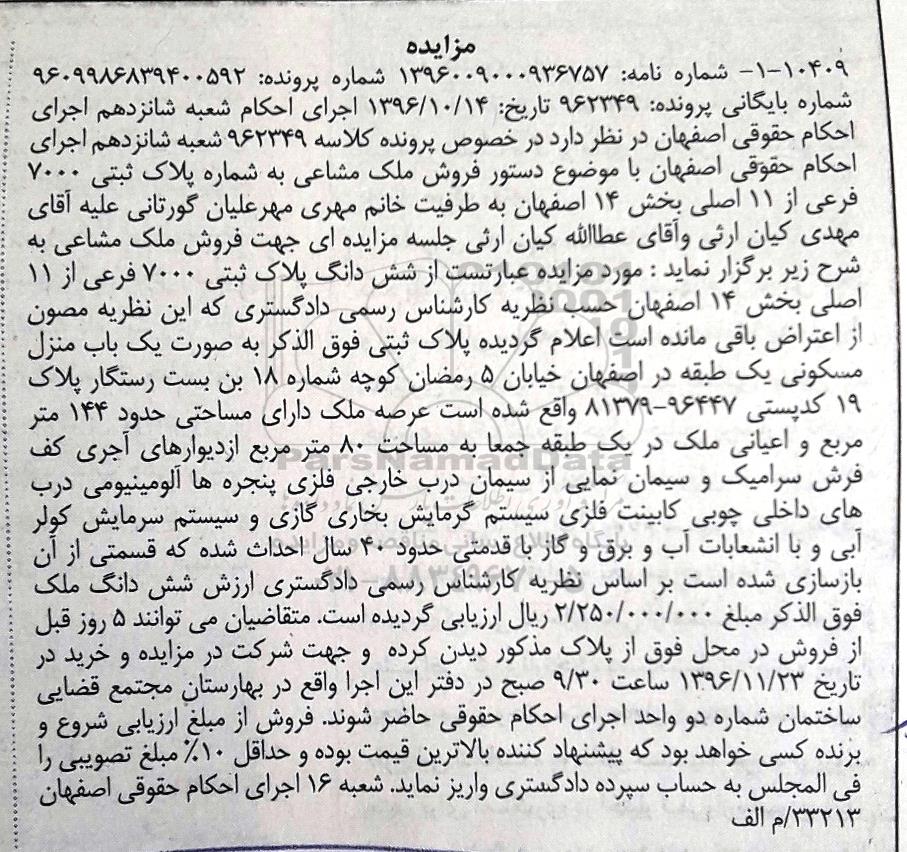 مزایده
۱۰۴۰۹-۱- شماره نامه: ۱۳۹۶۰۰۹۰۰۰۹۳۶۷۵۷ شماره پرونده: ۹۶۰۹۹۸۶۸۳۹۴۰۰۵۹۲
شماره بایگانی پرونده: ۹۶۲۳۴۹ تاریخ: ۱۳۹۶/۱۰/۱۴ اجرای احکام شعبه شانزدهم اجرای
احکام حقوقی اصفهان در نظر دارد در خصوص پرونده کلاسه ۹۶۲۳۴۹ شعبه شانزدهم اجرای
احکام حقوقی اصفهان با موضوع دستور فروش ملک مشاعی به شماره پلاک ثبتی ۷۰۰۰
فرعی از ۱۱ اصلی بخش ۱۴ اصفهان به طرفیت خانم مهری مهرعلیان گورتانی علیه آقای
مهدی کیان ارثی وآقای عطاالله کیان ارثی جلسه مزایده ای جهت فروش ملک مشاعی به
شرح زیر برگزار نماید : مورد مزایده عبارتست از شش دانگ پلاک ثبتی ۷۰۰۰ فرعی از ۱۱
اصلی بخش ۱۴ اصفهان حسب نظریه کارشناس رسمی دادگستری که این نظریه مصون
از اعتراض باقی مانده است اعلام گردیده پلاک ثبتی فوق الذکر به صورت یک باب منزل
مسکونی یک طبقه در اصفهان خیابان ۵ رمضان کوچه شماره ۱۸ بن بست رستگار پلاک
۱۹ کدپستی ۹۶۴۴۷-۸۱۳۷۹ واقع شده است عرصه ملک دارای مساحتی حدود ۱۴۴ متر
مربع و اعیانی ملک در یک طبقه جمعا به مساحت ۸۰ متر مربع ازدیوارهای آجری کف
فرش سرامیک و سیمان نمایی از سیمان درب خارجی فلزی پنجره ها آلومینیومی درب
های داخلی چوبی کابینت فلزی سیستم گرمایش بخاری گازی و سیستم سرمایش کولر
آبی و با انشعابات آب و برق و گاز با قدمتی حدود ۴۰ سال احداث شده که قسمتی از آن
بازسازی شده است بر اساس نظریه کارشناس رسمی دادگستری ارزش شش دانگ ملک
فوق الذکر مبلغ ۲/۲۵۰/۰۰۰/۰۰۰ ریال ارزیابی گردیده است. متقاضیان می توانند ۵ روز قبل
از فروش در محل فوق از پلاک مذکور دیدن کرده و جهت شرکت در مزایده و خرید در
تاریخ ۱۳۹۶/۱۱/۲۳ ساعت ۹/۳۰ صبح در دفتر این اجرا واقع در بهارستان مجتمع قضایی
ساختمان شماره دو واحد اجرای احکام حقوقی حاضر شوند. فروش از مبلغ ارزیابی شروع و
برنده کسی خواهد بود که پیشنهاد کننده بالاترین قیمت بوده و حداقل ۱۰٪ مبلغ تصویبی را
فی المجلس به حساب سپرده دادگستری واریز نماید. شعبه ۱۶ اجرای احکام حقوقی اصفهان
۳۳۲۱۳/م الف
ParsNamadData